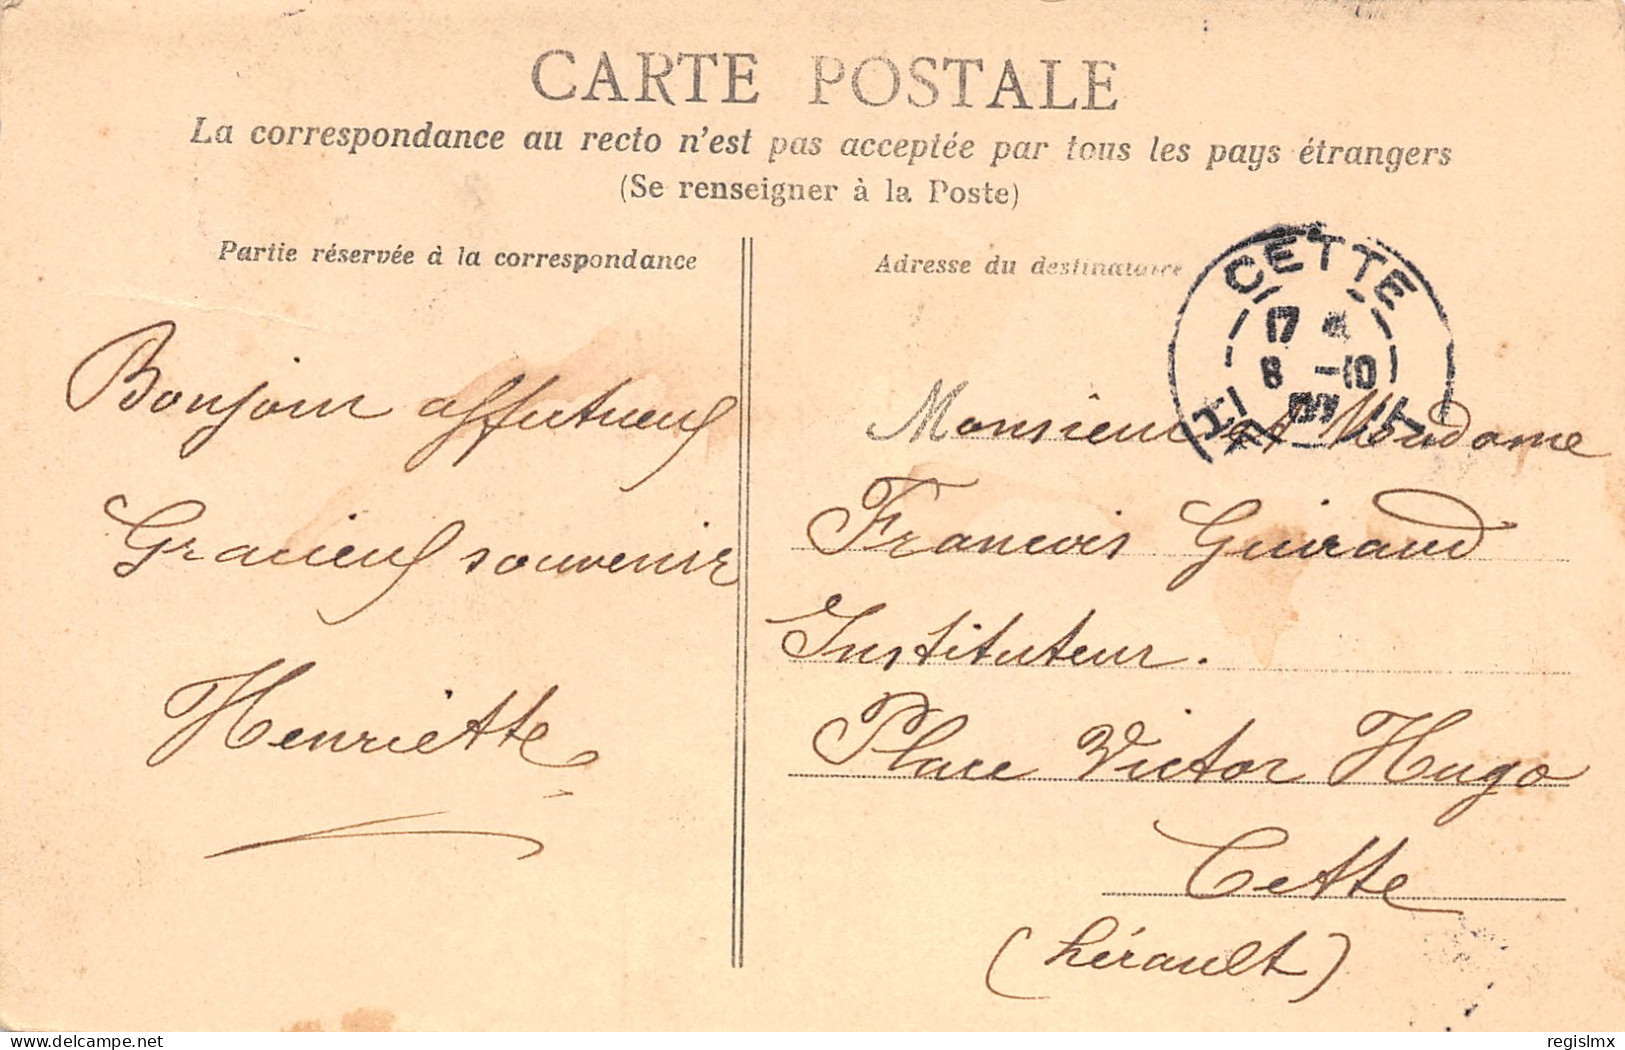 CARTE POSTALE
La correspondance au recto n'est pas acceptée par tous les pays étrangers
(Se renseigner à la Poste)
Partie réservée à la correspondance
Bonjour affectueux
Gracieux souvenir
Henriette
Adresse du destinataire
CETTE
17
8 -10
HÉRAULT
Monsieur et Madame
Francois Guiraud
Instituteur.
Place Victor Hugo
Cette
(hérault)
delcampe.net
regislmx